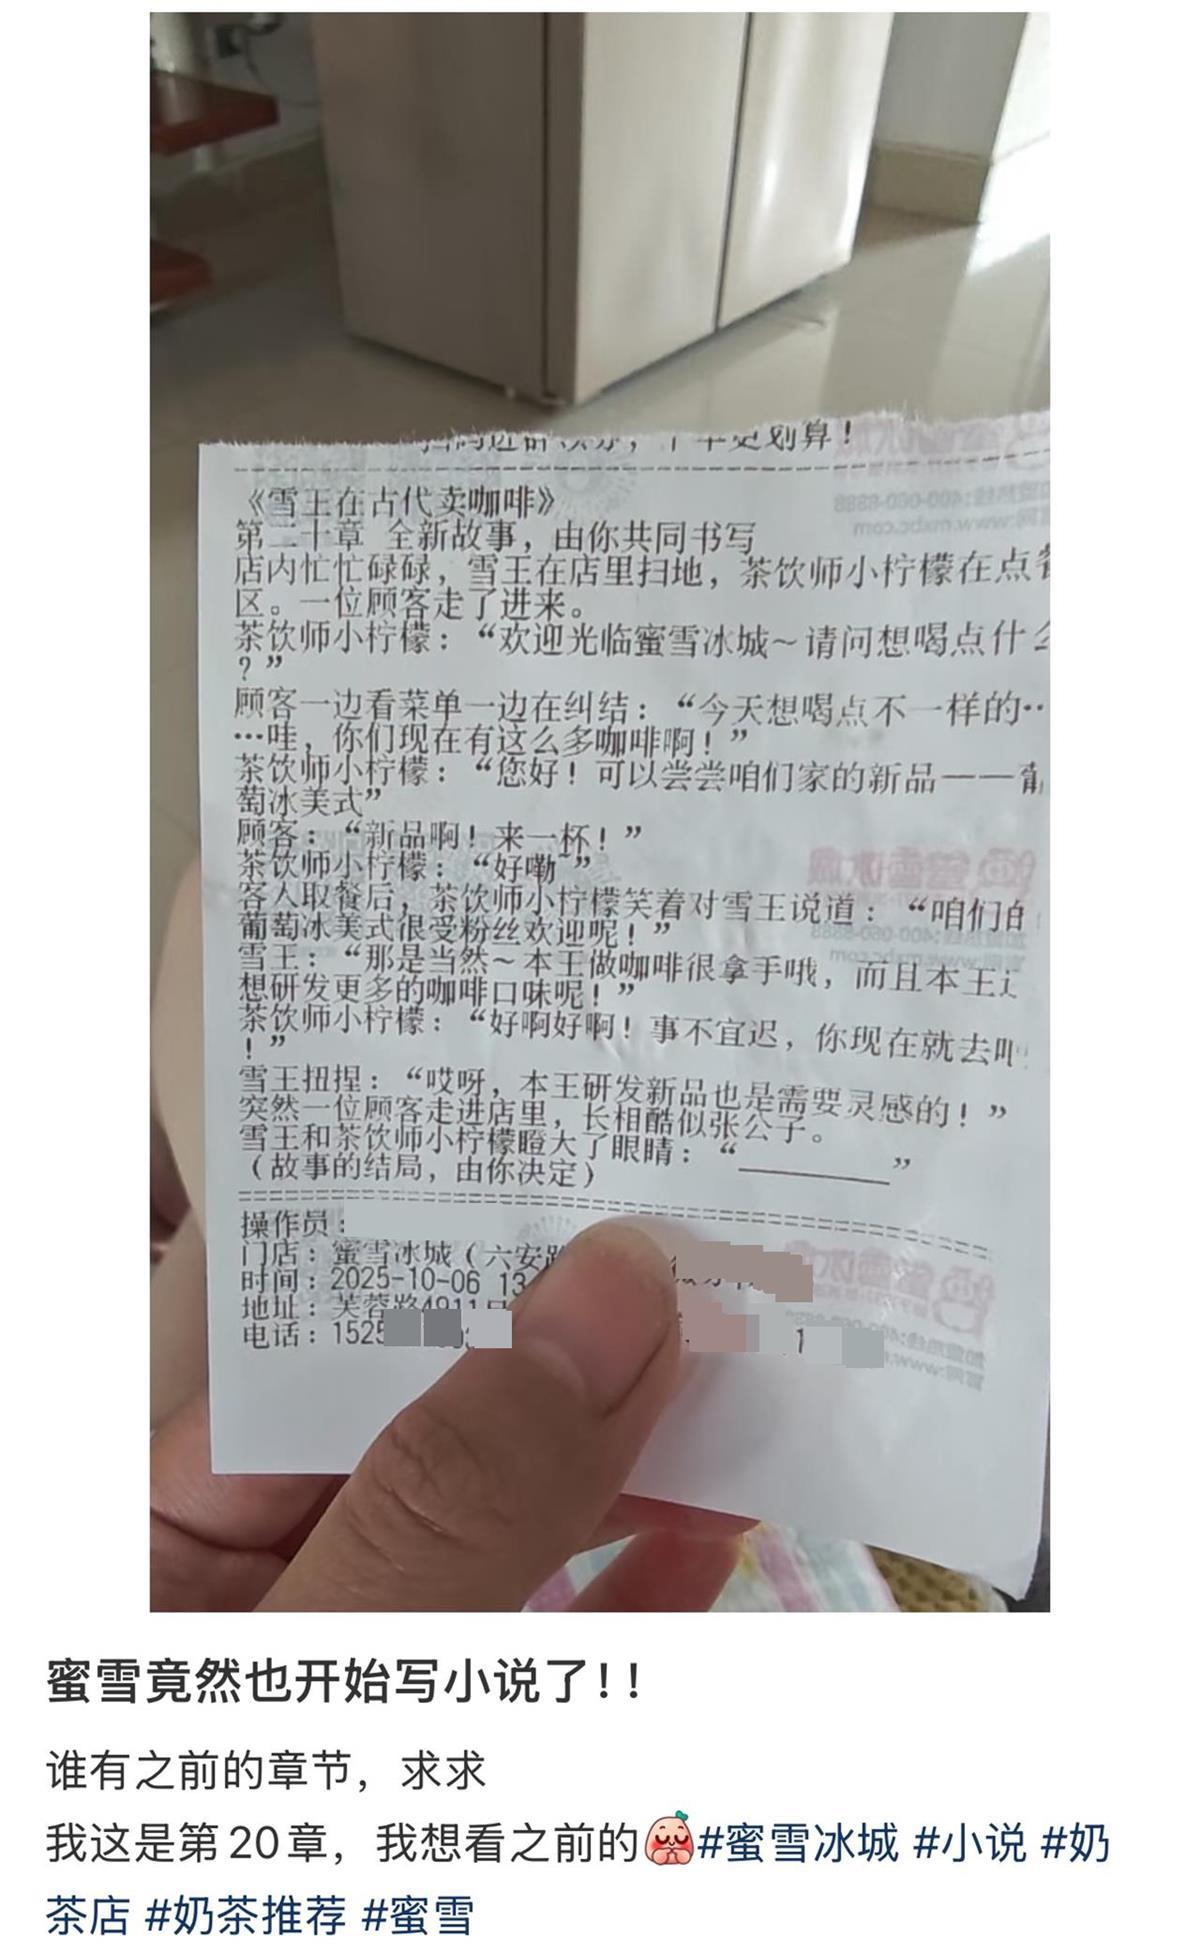 更划算！
《雪王在古代卖咖啡》
第二十章 全新故事，由你共同书写
店内忙忙碌碌，雪王在店里扫地，茶饮师小柠檬在点餐
区。一位顾客走了进来。
茶饮师小柠檬：“欢迎光临蜜雪冰城～请问想喝点什么
？”
顾客一边看菜单一边在纠结：“今天想喝点不一样的…
…哇，你们现在有这么多咖啡啊！”
茶饮师小柠檬：“您好！可以尝尝咱们家的新品——葡
萄冰美式”
顾客：“新品啊！来一杯！”
茶饮师小柠檬：“好嘞~”
客人取餐后，茶饮师小柠檬笑着对雪王说道：“咱们的
葡萄冰美式很受粉丝欢迎呢！”
雪王：“那是当然～本王做咖啡很拿手哦，而且本王还
想研发更多的咖啡口味呢！”
茶饮师小柠檬：“好啊好啊！事不宜迟，你现在就去吧
！”
雪王扭捏：“哎呀，本王研发新品也是需要灵感的！”
突然一位顾客走进店里，长相酷似张公子。
雪王和茶饮师小柠檬瞪大了眼睛：“________”
（故事的结局，由你决定）
操作员：
门店：蜜雪冰城（六安路
时间：2025-10-06 13
地址：芙蓉路4911号
电话：1525
蜜雪竟然也开始写小说了！！
谁有之前的章节，求求
我这是第20章，我想看之前的#蜜雪冰城 #小说 #奶
茶店 #奶茶推荐 #蜜雪